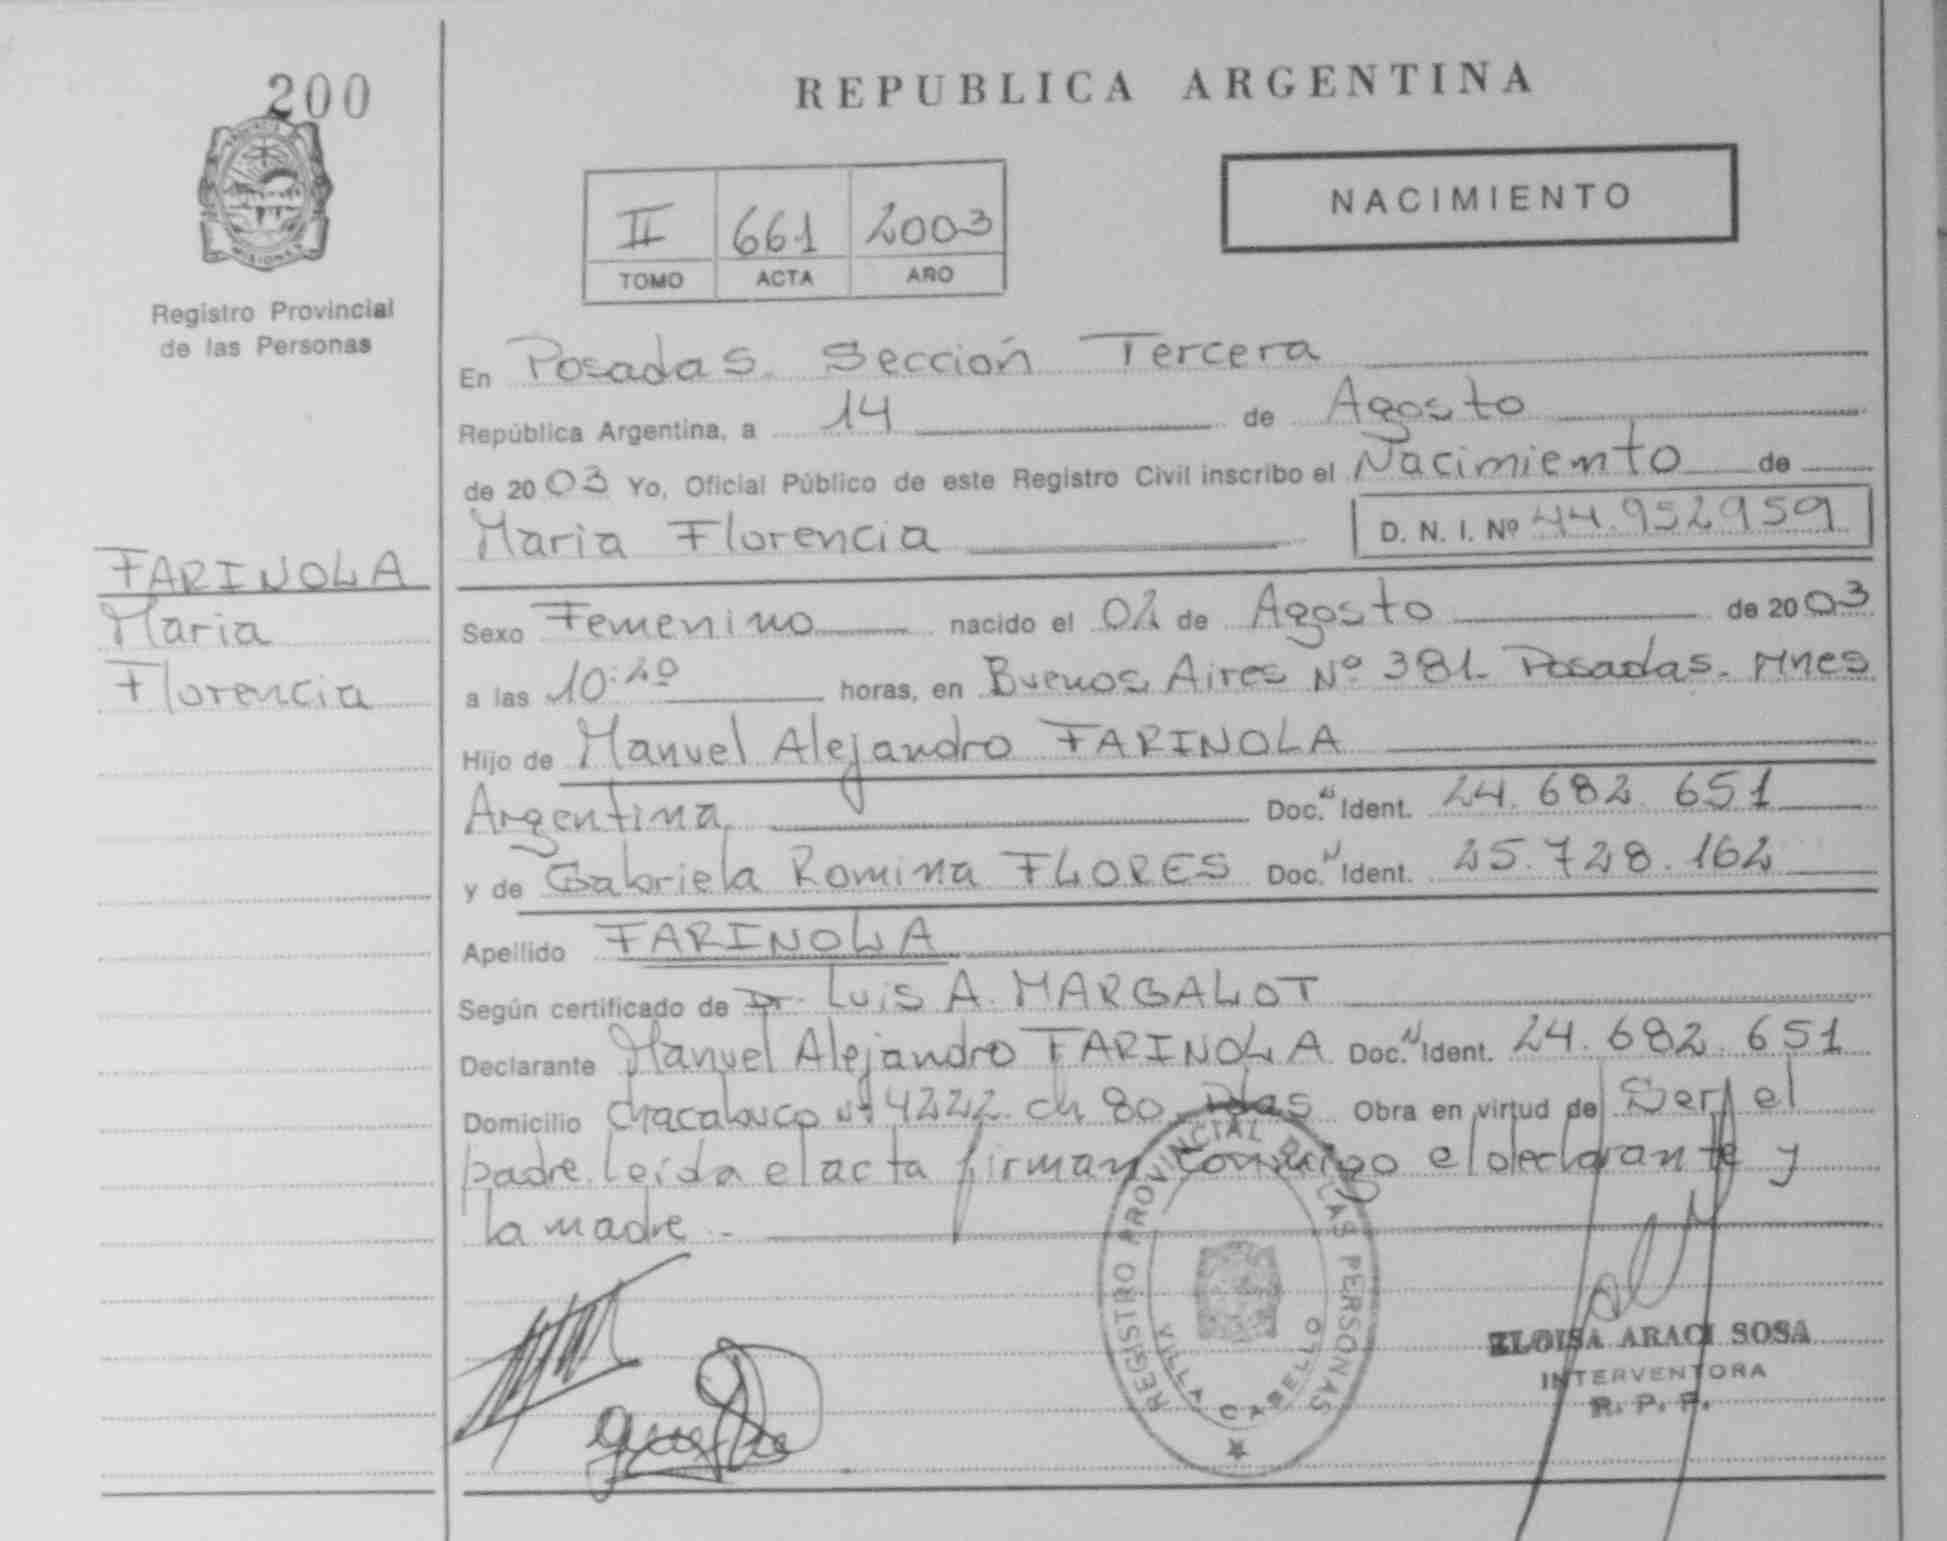 200
REPUBLICA ARGENTINA
NACIMIENTO
II 661 2003
TOMO ACTA AÑO
MISIONES
Registro Provincial
de las Personas
En Posadas. Sección Tercera
República Argentina, a 14 de Agosto
de 2003 Yo, Oficial Público de este Registro Civil inscribo el Nacimiento de
Maria Florencia D. N. I. Nº 44.952959
FARINOLA
Maria
Florencia
Sexo Femenino nacido el 02 de Agosto de 2003
a las 10:20 horas, en Buenos Aires Nº 381. Posadas. Mnes
Hijo de Manuel Alejandro FARINOLA
Argentina Doc. N Ident. 24.682.651
y de Gabriela Romina FLORES Doc. N Ident. 25.728.162
Apellido FARINOLA
Según certificado de Dr. Luis A. MARGALOT
Declarante Manuel Alejandro FARINOLA Doc. N Ident. 24.682.651
Domicilio Chacabuco Nº 4222. ch 80. Pdas Obra en virtud de Ser el
padre. leída el acta firman conmigo el declarante y
la madre.-
REGISTRO PROVINCIAL DE LAS PERSONAS
VILLA CABELLO
ELOISA ARACI SOSA
INTERVENTORA
R. P. P.